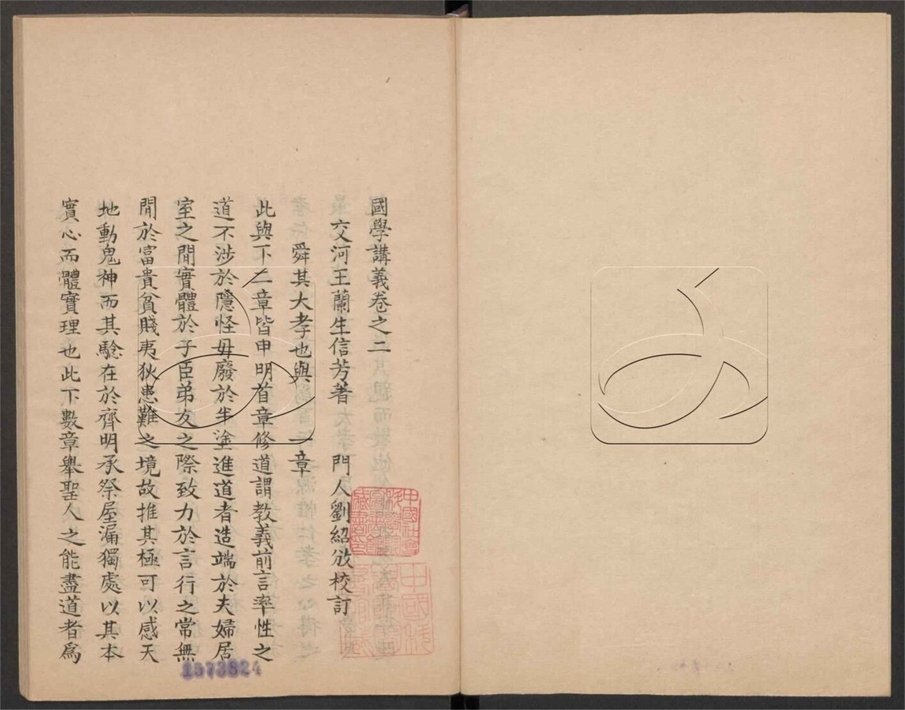 國學講義卷之二
交河王蘭生信芳著 門人劉紹攽校訂
舜其大孝也與 一章
此與下二章皆申明首章修道謂教義前言率性之
道不涉於隱怪毋廢於半塗進道者造端於夫婦居
室之閒實體於子臣弟友之際致力於言行之常無
閒於富貴貧賤夷狄患難之境故推其極可以感天
地動鬼神而其驗在於齊明承祭屋漏獨處以其本
實心而體實理也此下數章舉聖人之能盡道者爲
1573824